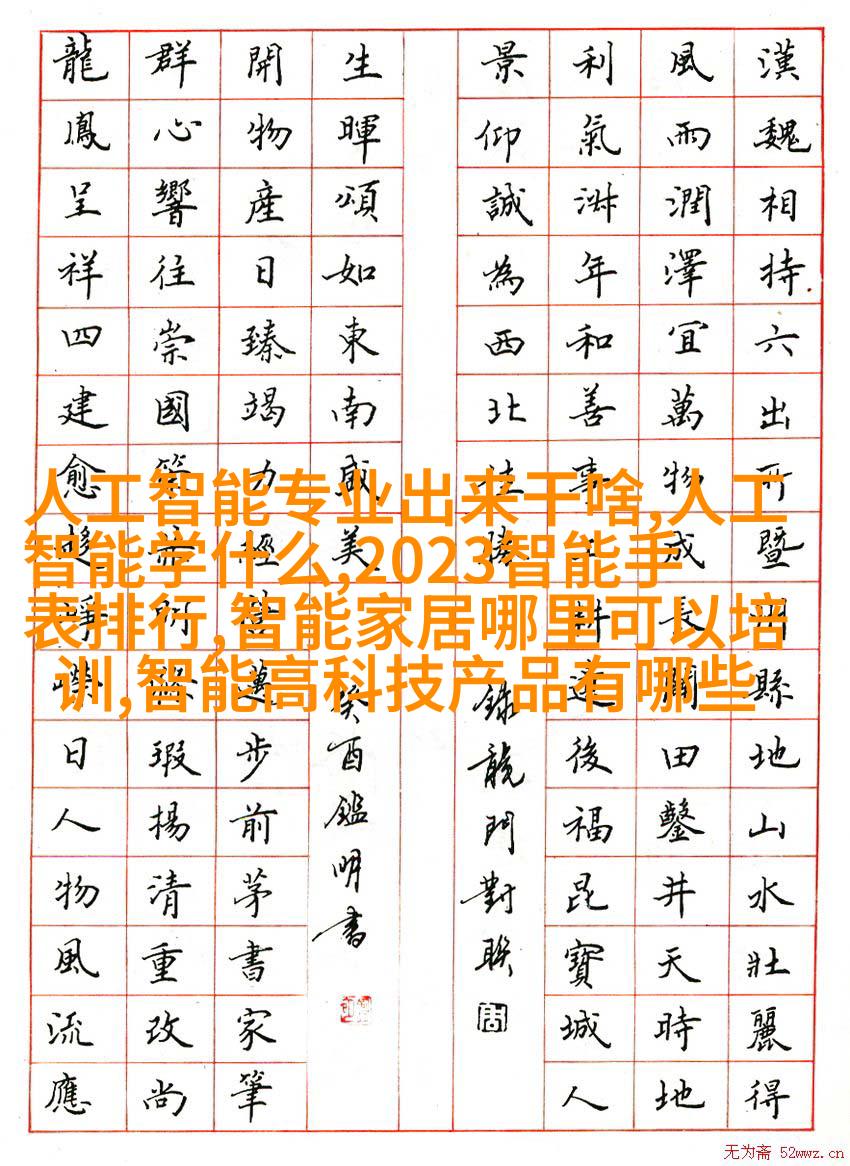 漢魏相持六出所暨州縣地山水壯麗得
風雨潤澤宜萬物成長闢田鑿井天時地
利氣淑年和善事耕達後福昆寶城人
景仰誠為西北佳勝
錄龍門對聯
生暉頌如東南咸美
癸酉鑑明書
開物產日臻竭力經營邁步前茅書家筆
群心響往崇國策瑕揚清重改尚
龍鳳呈祥四建愈趨崢嶸日人物風流應
人工智能专业出来干啥,人工
智能学什么,2023智能手
表排行,智能家居哪里可以培
训,智能高科技产品有哪些
无为斋 52wwz.cn